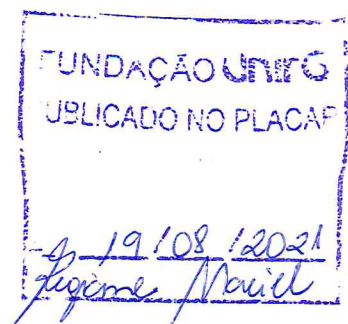 FUNDAÇÃO UnirG
UBLICADO NO PLACAR
19/08/2021
Maciel